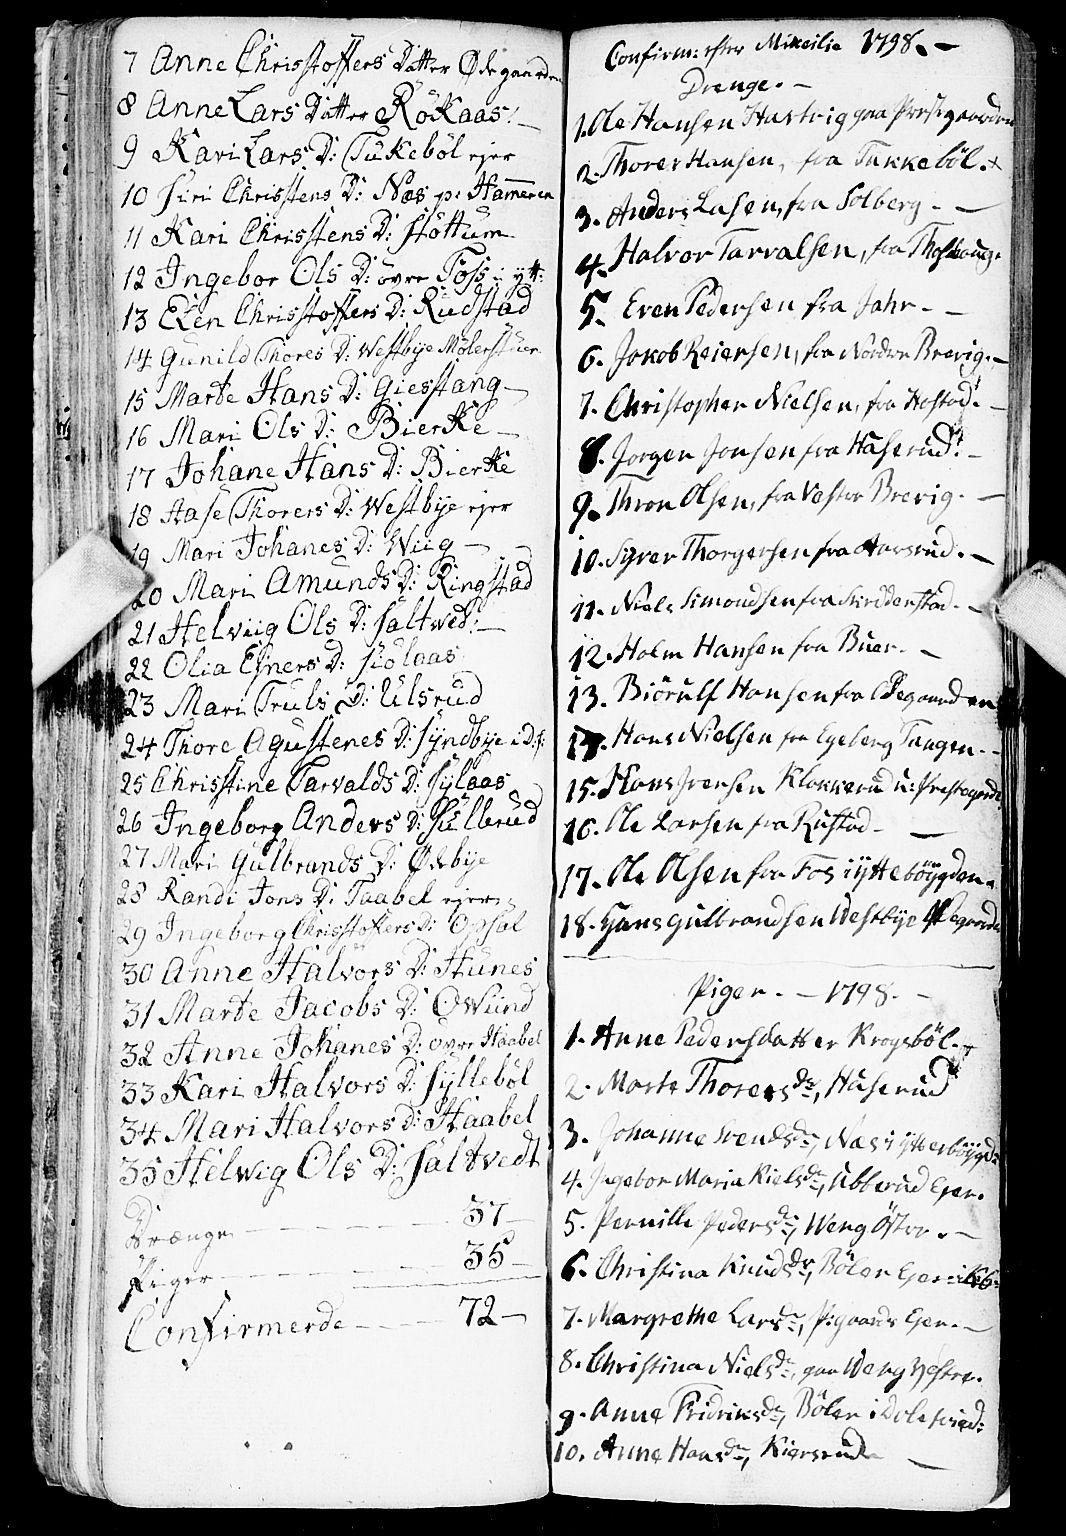 7 Anne Christoffers Datter Ødegaarden
8 Anne Lars Datter Rökaas
9 Kari Lars D: Tukeböl ejer
10 Siri Christens D: Næs p: Hammeren
11 Kari Christens D: Støttum
12 Ingebor Ols D: övre Foss i ytt:
13 Elen Christoffers D: Rudstad
14 Gunild Thores D: Westbye Mølerstuen
15 Marte Hans D: Giesstang
16 Mari Ols D: Bierke
17 Johane Hans D: Bierke
18 Aase Thorers D: Westbye ejer
19 Mari Johanes D: Wiig
20 Mari Amunds D: Ringstad
21 Helviig Ols D: Saltwed
22 Olia Ejners D: Siölaas
23 Mari Truls D: Ulsrud
24 Thore Agustenes D: Syndbye i D:
25 Christine Tarvalds D: Sylaas
26 Ingeborg Anders D: Sulerud
27 Mari Gulbrands D: Ødebye
28 Randi Jons D: Taabel ejer
29 Ingeborg Christoffers D: Opsal
30 Anne Halvors D: Hunes
31 Marte Jacobs D: Owind
32 Anne Johanes D: övre Haabel
33 Kari Halvors D: Sylleböl
34 Mari Halvors D: Haabel
35 Helwig Ols D: Saltvedt
Drænge 37
Piger 35
Confirmerde 72
Confirm: efter Mikeilie 1798.
Drenge.
1. Ole Hansen Hastvig paa Prestgaarden
2. Thorer Hansen, fra Tukkeböl. x
3. Anders Lasen, fra Solberg
4. Halvor Tarvalsen, fra
5. Even Pedersen fra Jahr
6. Jakob Reiersen, fra Nordre Brevig.
7. Christopher Nielsen, fra Hostad.
8. Jorgen Jonsen fra Haaserud.
9. Thron Olsen, fra Vestre Brevig.
10. Syver Thorgersen fra Aarsrud.
11. Niels Simondsen fra Skiddenstad.
12. Holm Hansen fra Buer.
13. Biörulf Hansen fra Ødegaarden
14. Hans Nielsen fra Egeberg Tangen.
15. Hans Iversen Klokkerud u: Prestegorde
16. Ole Larsen fra Rustad
17. Ole Olsen fra Fos i yttebøygden.
18. Hans Gulbrandsen Westbye Ødegaarden
Piger. 1798.
1. Anne Pedersdatter Krogsböl.
2. Marte Thoresdr, Haaserud
3. Johanne Svendsdr, Næs i ytterbøygd:
4. Ingebor Maria Kielsdr, Ubberud Ejer.
5. Pernille Pedersdr, Weng Östre.
6. Christina Knudsdr, Bölen Ejer
7. Margrethe Larsdr, P:gaards Ejer.
8. Christina Nielsdr, paa Weng Vestre.
9. Anne Fridriksdr, Bölen i Dolehvied:
10. Anne Hansdr, Kiersrud